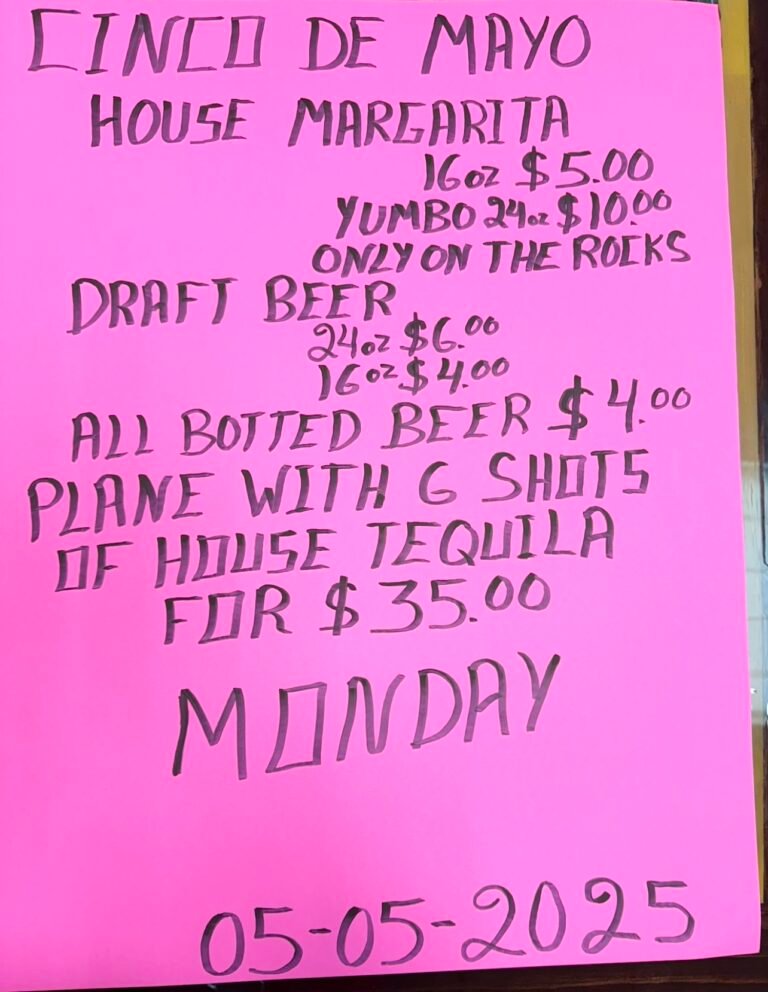 CINCO DE MAYO
HOUSE MARGARITA
16oz $5.00
YUMBO 24oz $10.00
ONLY ON THE ROCKS
DRAFT BEER
24oz $6.00
16oz $4.00
ALL BOTTED BEER $4.00
PLANE WITH 6 SHOTS
OF HOUSE TEQUILA
FOR $35.00
MONDAY
05-05-2025